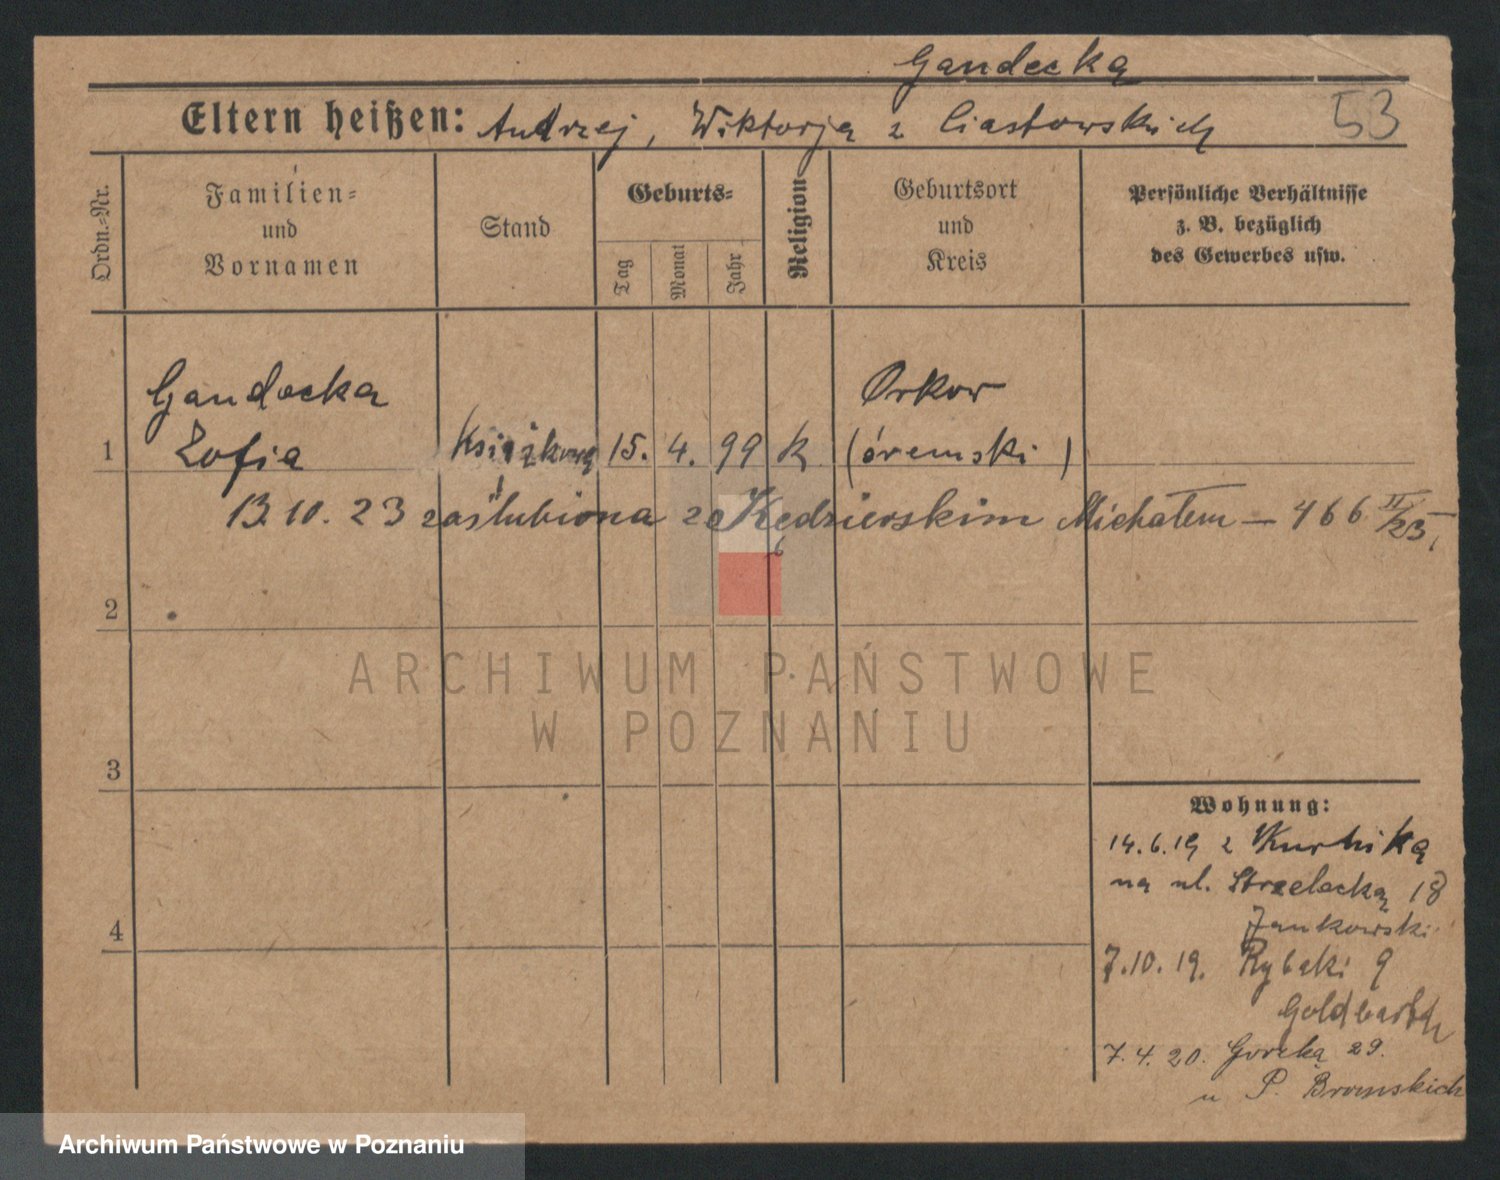 Gandecka
53
Eltern heißen: Andrzej, Wiktorja z Ciastowskich
Ordn.-Nr.
Familien-
und
Vornamen
Stand
Geburts-
Tag
Monat
Jahr
Religion
Geburtsort
und
Kreis
Persönliche Verhältnisse
z. B. bezüglich
des Gewerbes usw.
Gandecka
Orkow
1 Zofia Książkową 15. 4. 99 k (śremski)
13.10.23 zaślubiona ze Kędzierskim Michałem — 466 II/23,
2
ARCHIWUM PAŃSTWOWE
W POZNANIU
3
Wohnung:
14.6.19 z Kurnika
na ul. Strzelecką 18
Jankowski
4
7.10.19. Rybaki 9
7.4.20. Gorzka 29.
u P. Bromskich
Archiwum Państwowe w Poznaniu